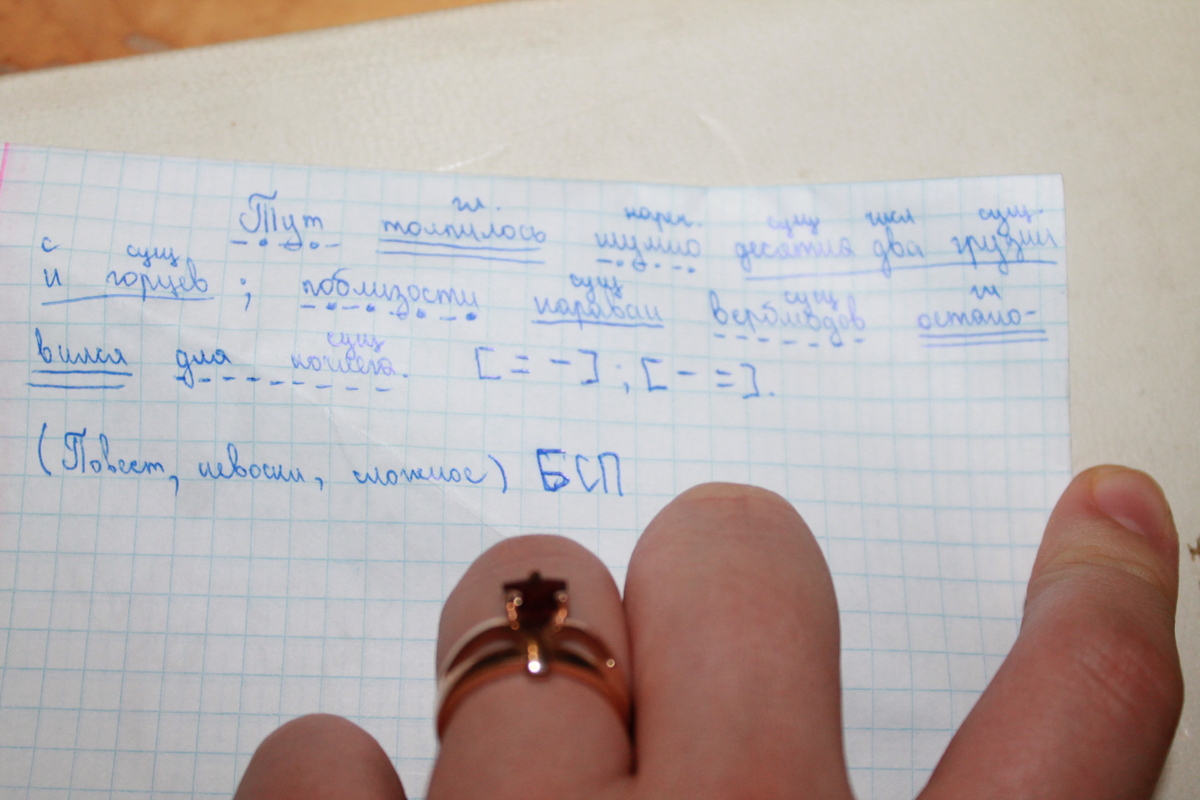 гл. нареч. сущ числ сущ.
Тут толпилось шумно десятка два грузин
с сущ сущ сущ гл
и горцев ; поблизости караван верблюдов остано-
сущ
вился для ночлега. [ = - ] ; [ - = ].
(Повест, невоскл, сложное) БСП